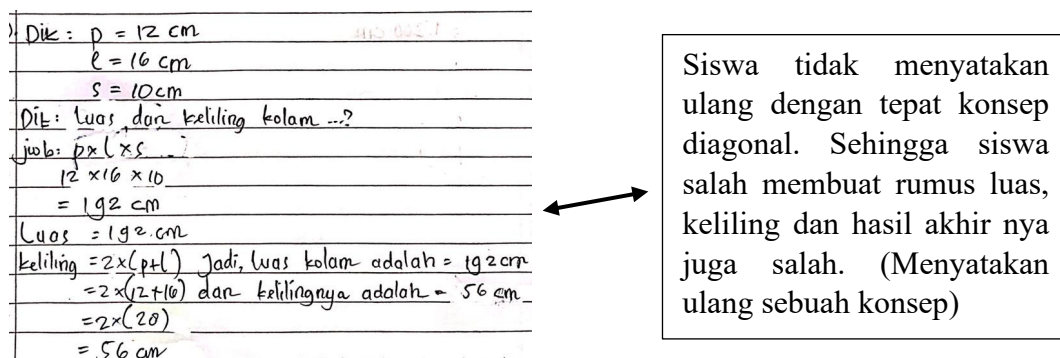 Dik : p = 12 cm
l = 16 cm
s = 10 cm
Dit : Luas dan keliling kolam ...?
jwb: p x l x s
12 x 16 x 10
= 192 cm
Luas = 192 cm
keliling = 2x(p+l) Jadi, luas kolam adalah = 192 cm
= 2x(12+16) dan kelilingnya adalah = 56 cm
= 2x(28)
= 56 cm
Siswa tidak menyatakan
ulang dengan tepat konsep
diagonal. Sehingga siswa
salah membuat rumus luas,
keliling dan hasil akhir nya
juga salah. (Menyatakan
ulang sebuah konsep)